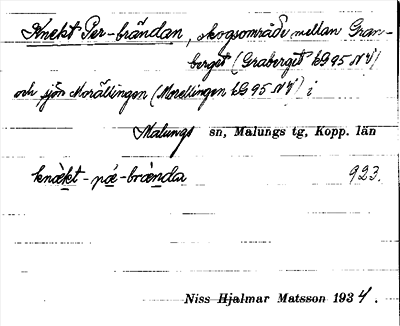 Knekt Per-brändan, skogsområde mellan Gran-
berget (Graberget kG95NV)
och sjön Morällingen (Morellingen kG95NV) i
Malungs sn, Malungs tg, Kopp. län
knäkt-pæ-brànda 923.
Niss Hjalmar Matsson 1934.